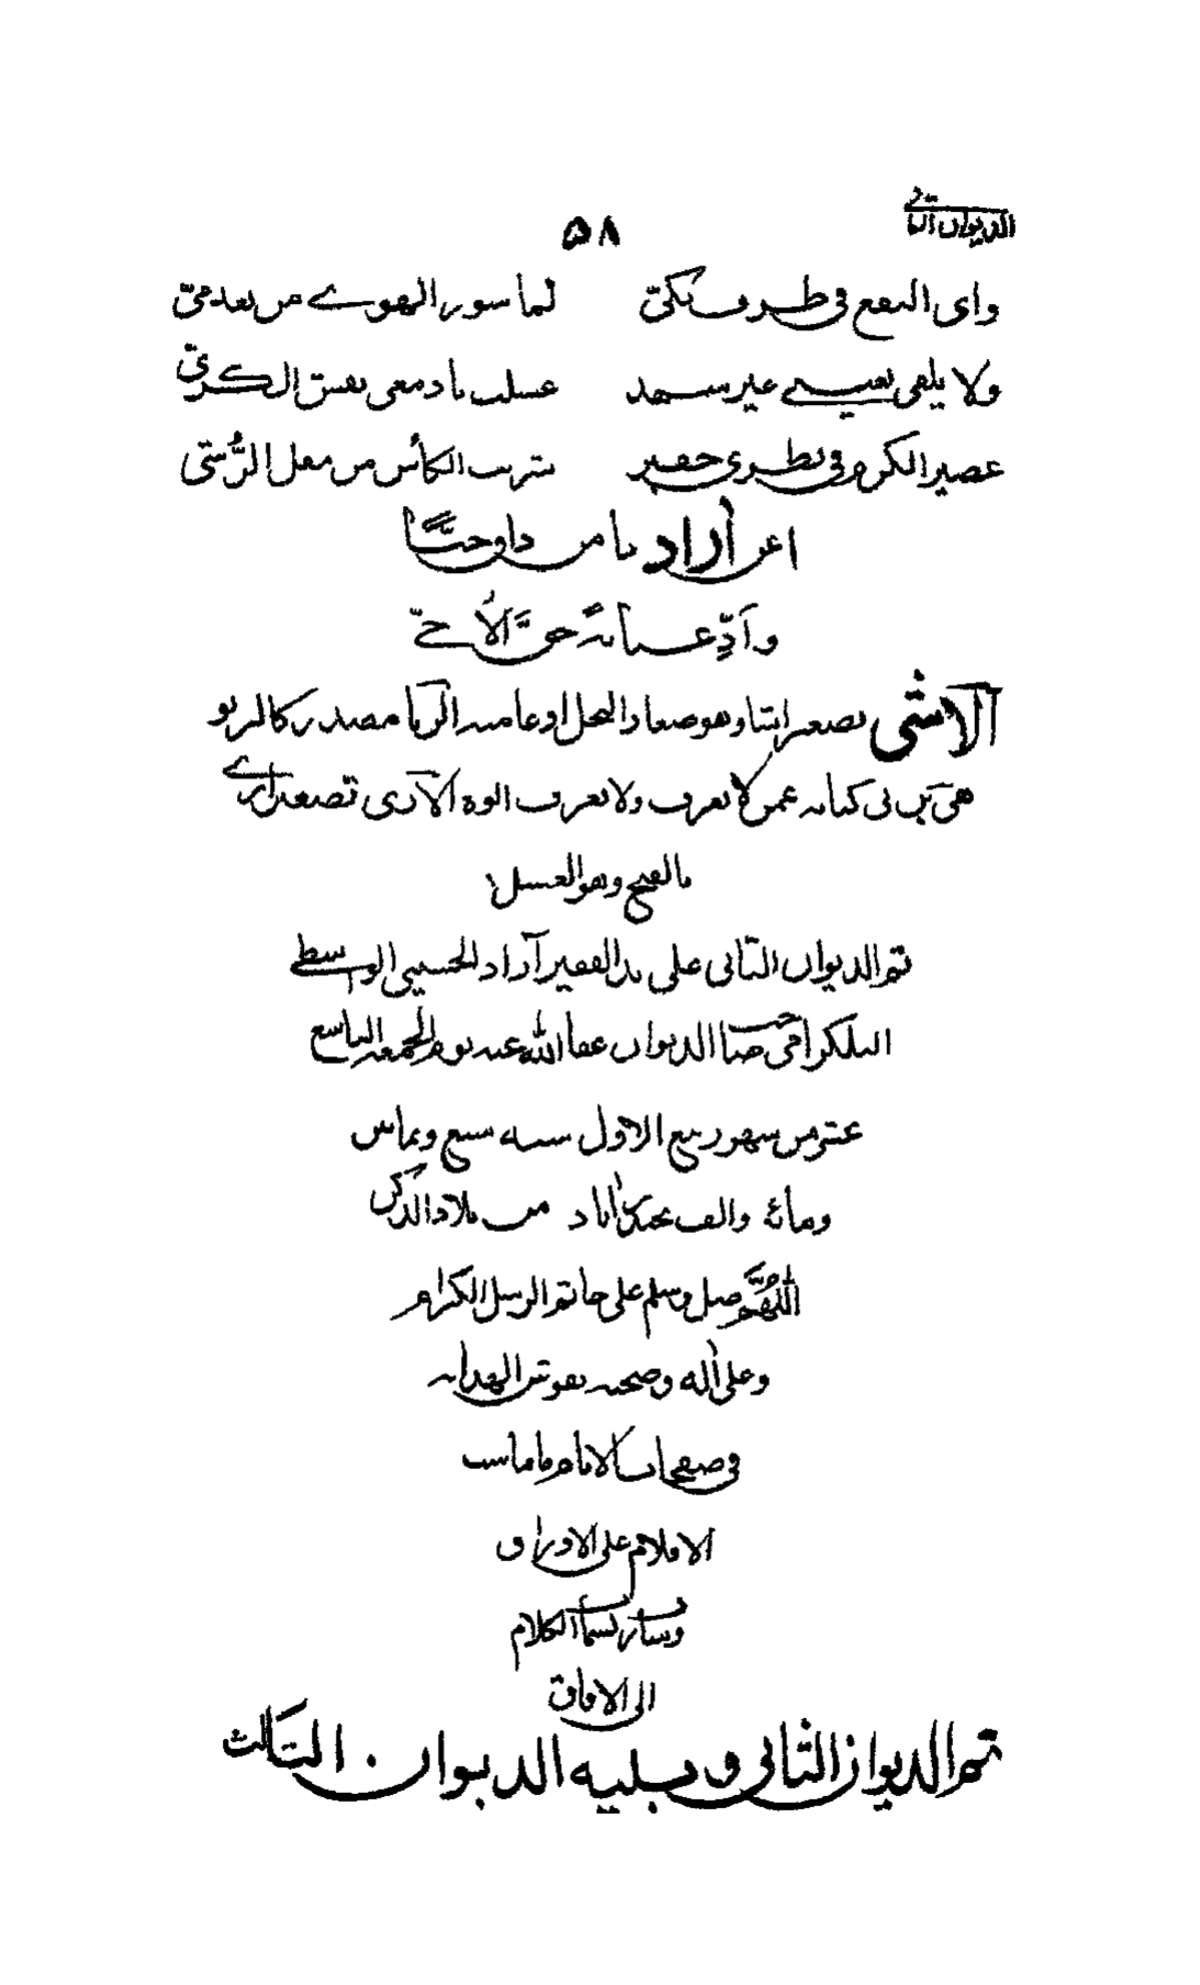 الديوان الثاني
٥٨
واي النفع في طرف تكي لما سور الهوى من بعد مي
ولا يلقى نعيسى غير سهد غسلت بادمعي نقش الكرى
عصير الكرم في نظري حقير شربت الكأس من مقل الرشي
اعن آزاد يا من داو حيا
وآد عناية حق الأخي
الاشي تصغير اشا وهو صغار النخل او عامته الربا مصدر كالربو
هي بن بي كناية عمن لا يعرف ولا يعرف ابوه الآري تصغير اري
بالفتح وهو العسل
تم الديوان الثاني على يد الفقير آزاد الحسيني الواسطي
البلكرامي صاحب الديوان عفا الله عنه يوم الجمعة التاسع
عشر من شهر ربيع الاول سنة سبع وثمانين
ومائة والف بحيدراباد من بلاد الدكن
اللهم صل وسلم على خاتم الرسل الكرام
وعلى اله وصحبه نقوش الهداية
في صفحات الايام ما ماست
الاقلام على الاوراق
وسارت نسمات الكلام
الى الافاق
تم الديوان الثاني ويليه الديوان الثالث